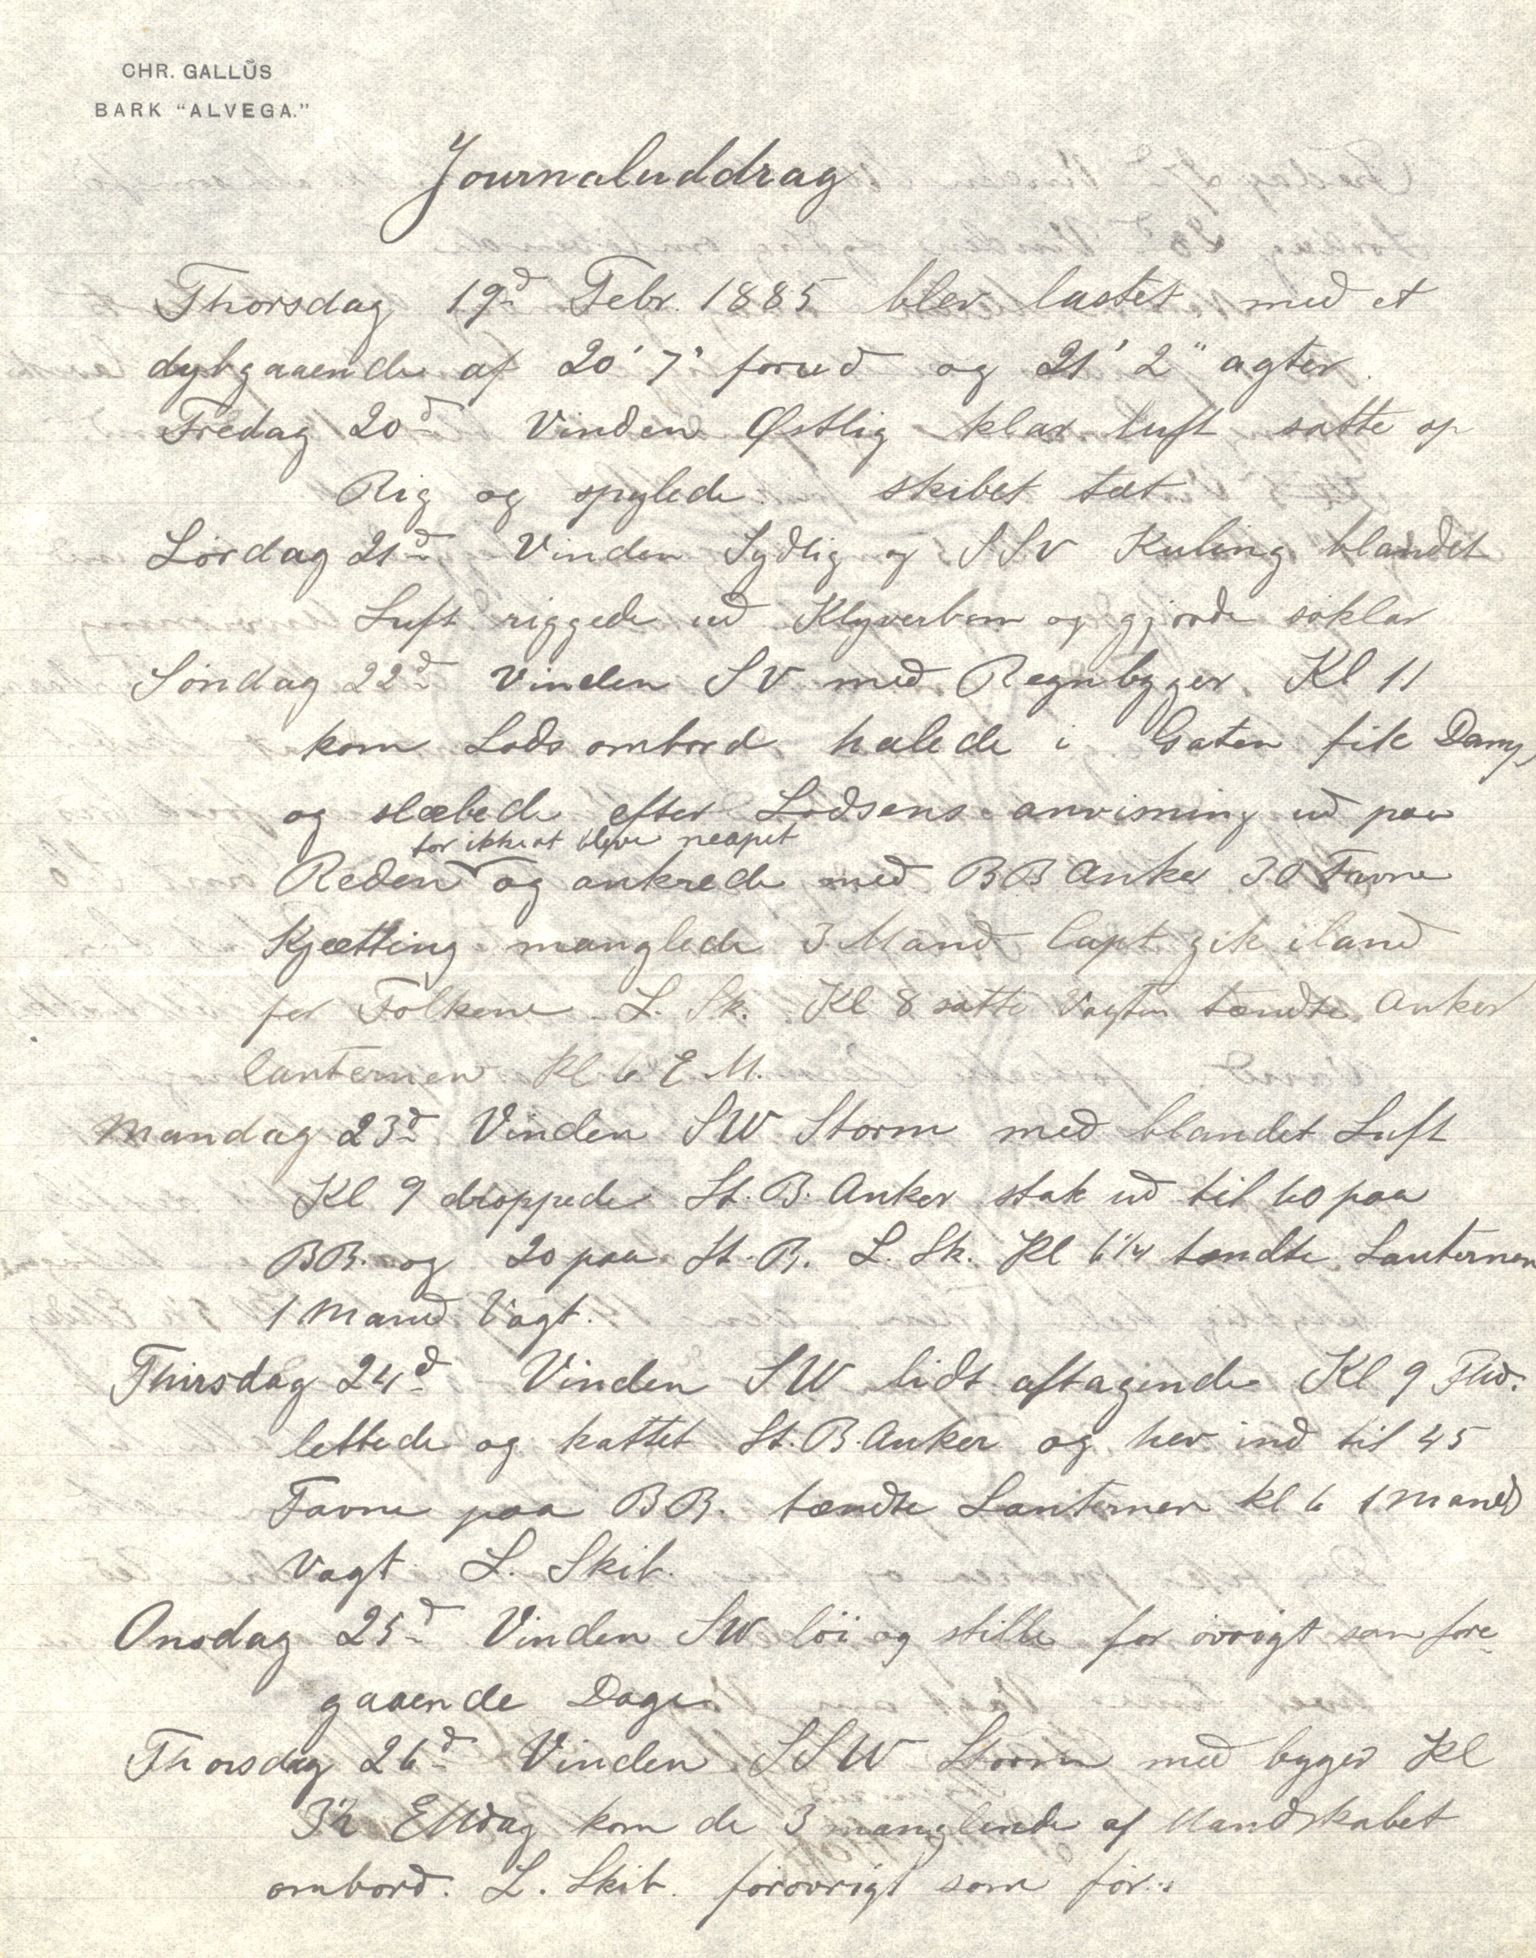 CHR. GALLŬS
BARK "ALVEGA."
Journaluddrag
Thorsdag 19d Febr. 1885 blev lastet med et
dybgaaende af 20' 7" forud og 21' 2" agter.
Fredag 20d Vinden Østlig klar luft satte op
Rig og spylede. skibet tæt
Lørdag 21d Vinden Sydlig og SSV Kuling blandet
Luft riggede ud Klyverbom og gjorde søklar
Søndag 22d Vinden SV med Regnbyger. Kl 11
kom Lods ombord halede i Gaten fik Damp
og slæbede efter Lodsens anvisning ud paa
for ikke at blive neapet
Reden og ankrede med BB Anker 30 Favne
Kjætting manglede 3 Mand Capt gik iland
for Folkene. L. Sk. Kl 8 satte Vagten tændte Anker
lanternen Kl 6 E M.
Mandag 23d Vinden SW Storm med blandet Luft
Kl 9 droppede St. B. Anker stak ud til 60 paa
BB. og 20 paa St. B. L. Sk. Kl 6 1/4 tændte Lanternen
1 Mand Vagt.
Thirsdag 24d Vinden SW lidt aftagende Kl 9
lettede og kattet St. B. Anker og hev ind til 45
Favne paa BB. tændte Lanternen kl 6 1 Mand
Vagt L. Skib.
Onsdag 25d Vinden SW løi og stille for øvrigt som fore-
gaaende Dage
Thorsdag 26d Vinden SSW Storm med byger Kl
3 1/2 EMdag kom de 3 manglende af Mandskabet
ombord. L. Skib. forøvrigt som før.